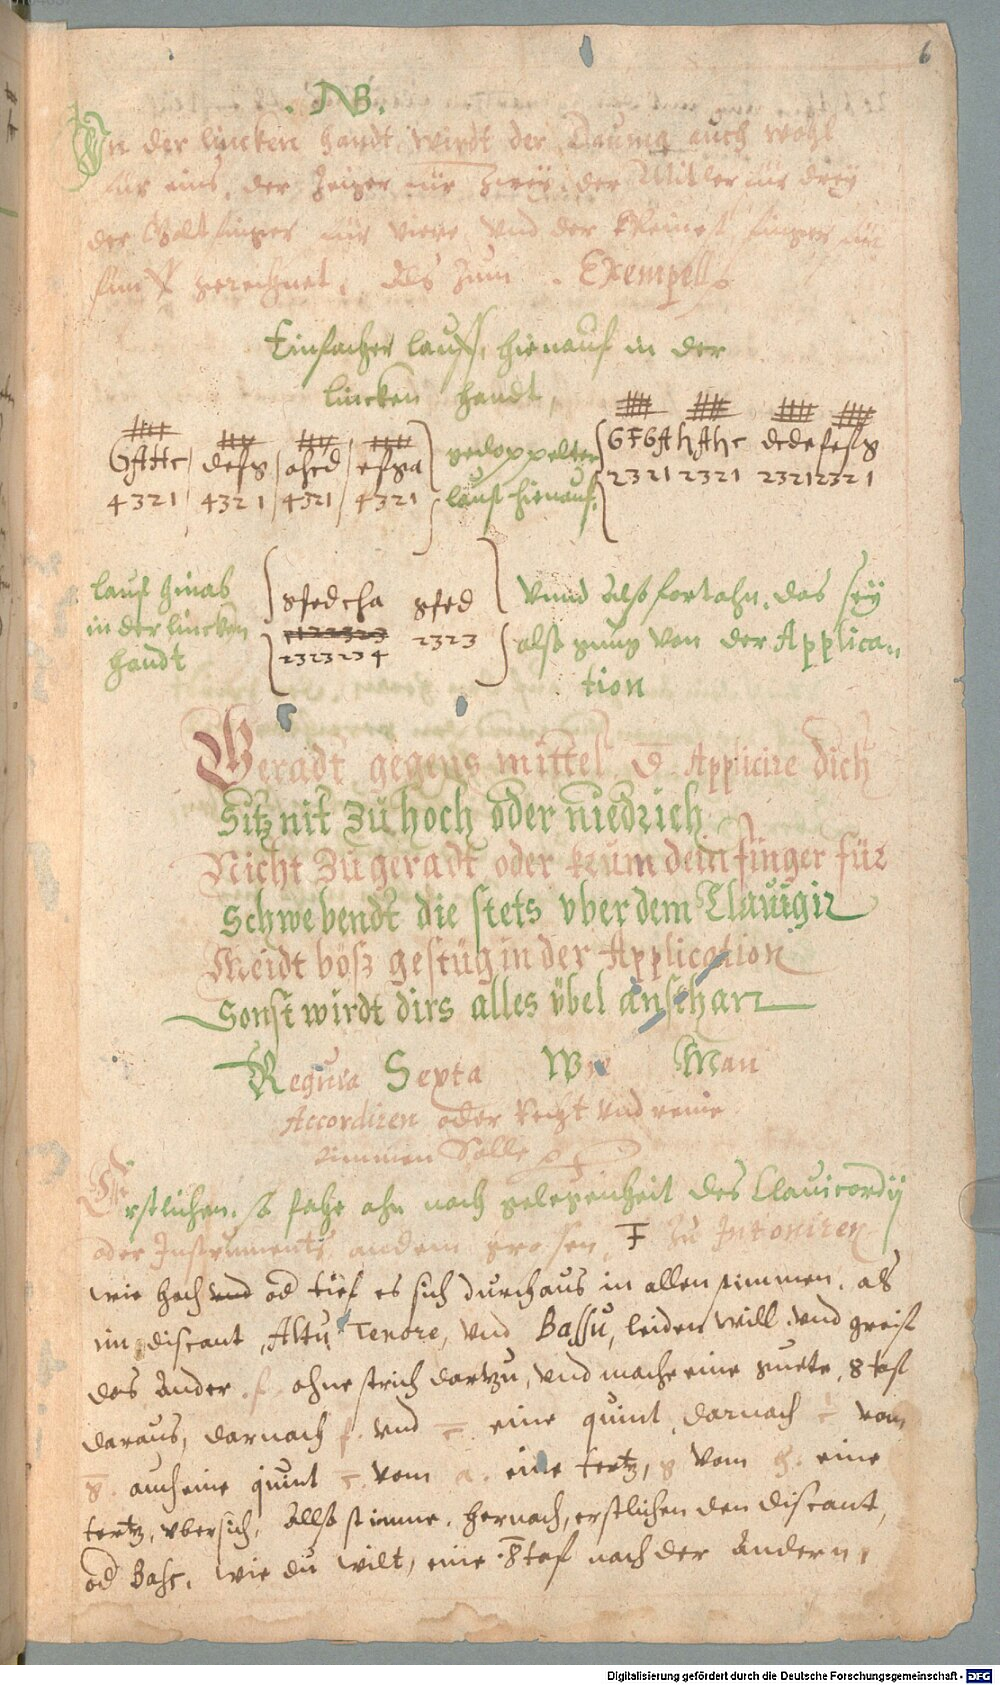 6
. NB .
In der lincken handt wirdt der Daume auch wohl
für eins, der Zeiger für zweÿ, der Mitler für dreÿ
der Goltfinger für viere vnd der kleinest finger für
fünff gerechnet. Als zum . Exempell
Einfacher lauff, hienauf in der
lincken handt,
GAHc / defg / ahcd / efga
4321 / 4321 / 4321 / 4321
gedoppelter
lauf hienauf.
GFGA hAhc dcde fefg
2321 2321 2321 2321
lauf hinab
in der lincken
handt
gfedcha gfed
2323234 2323
Vnnd also fortahn. das seÿ
also gnug von der Applican
tion
Geradt gegens mittel Applicire dich
Sitz nit zu hoch oder niedrich
Nicht zu geradt oder krum dein finger für
Schwebendt die stets vber dem Clauigir
Meidt böß in der Application
Sonst wirdt dirs alles übel ansthan
Regula Sexta Wie Man
Accordiren oder Recht vnd reine
stimmen Solle
Erstlichen. So fahe ahn nach gelegenheit des Clauicordÿ
oder Instruments andem grossen F zu Intoniren
wie hoch vnd od tief es sich durchaus in allen stimmen. als
im discant, Altu Tenore, vnd Bassu, leiden will. vnd greif
das Ander f. ohne strich dartzu, vnd mache eine guete 8taf
daraus, darnach f. vnd c. eine quint darnach c vom
g. auch eine quint c. vom a. eine tertz, g vom h. eine
tertz, vbersich, Also stimme. hernach, erstlichen den discant,
od Bass. wie du wilt, eine 8taf nach der Andern,
Digitalisierung gefördert durch die Deutsche Forschungsgemeinschaft - DFG